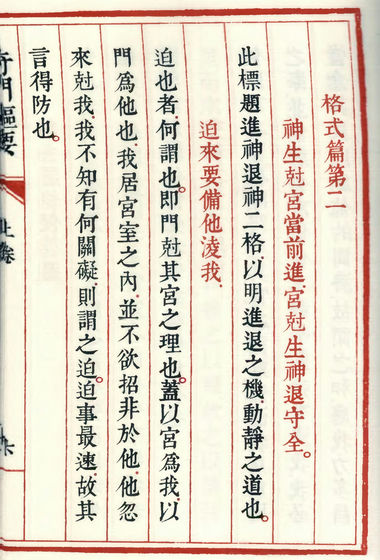 格式篇第二
神生尅宮當前進宮尅生神退守全。
此標題進神退神二格以明進退之機動靜之道也
迫來要備他淩我
迫也者何謂也即門尅其宮之理也。蓋以宮爲我以
門爲他也我居宮室之內並不欲招非於他他忽
來尅我我不知有何關礙則謂之迫。迫事最速故其
言得防也。
奇門樞要
上卷
六